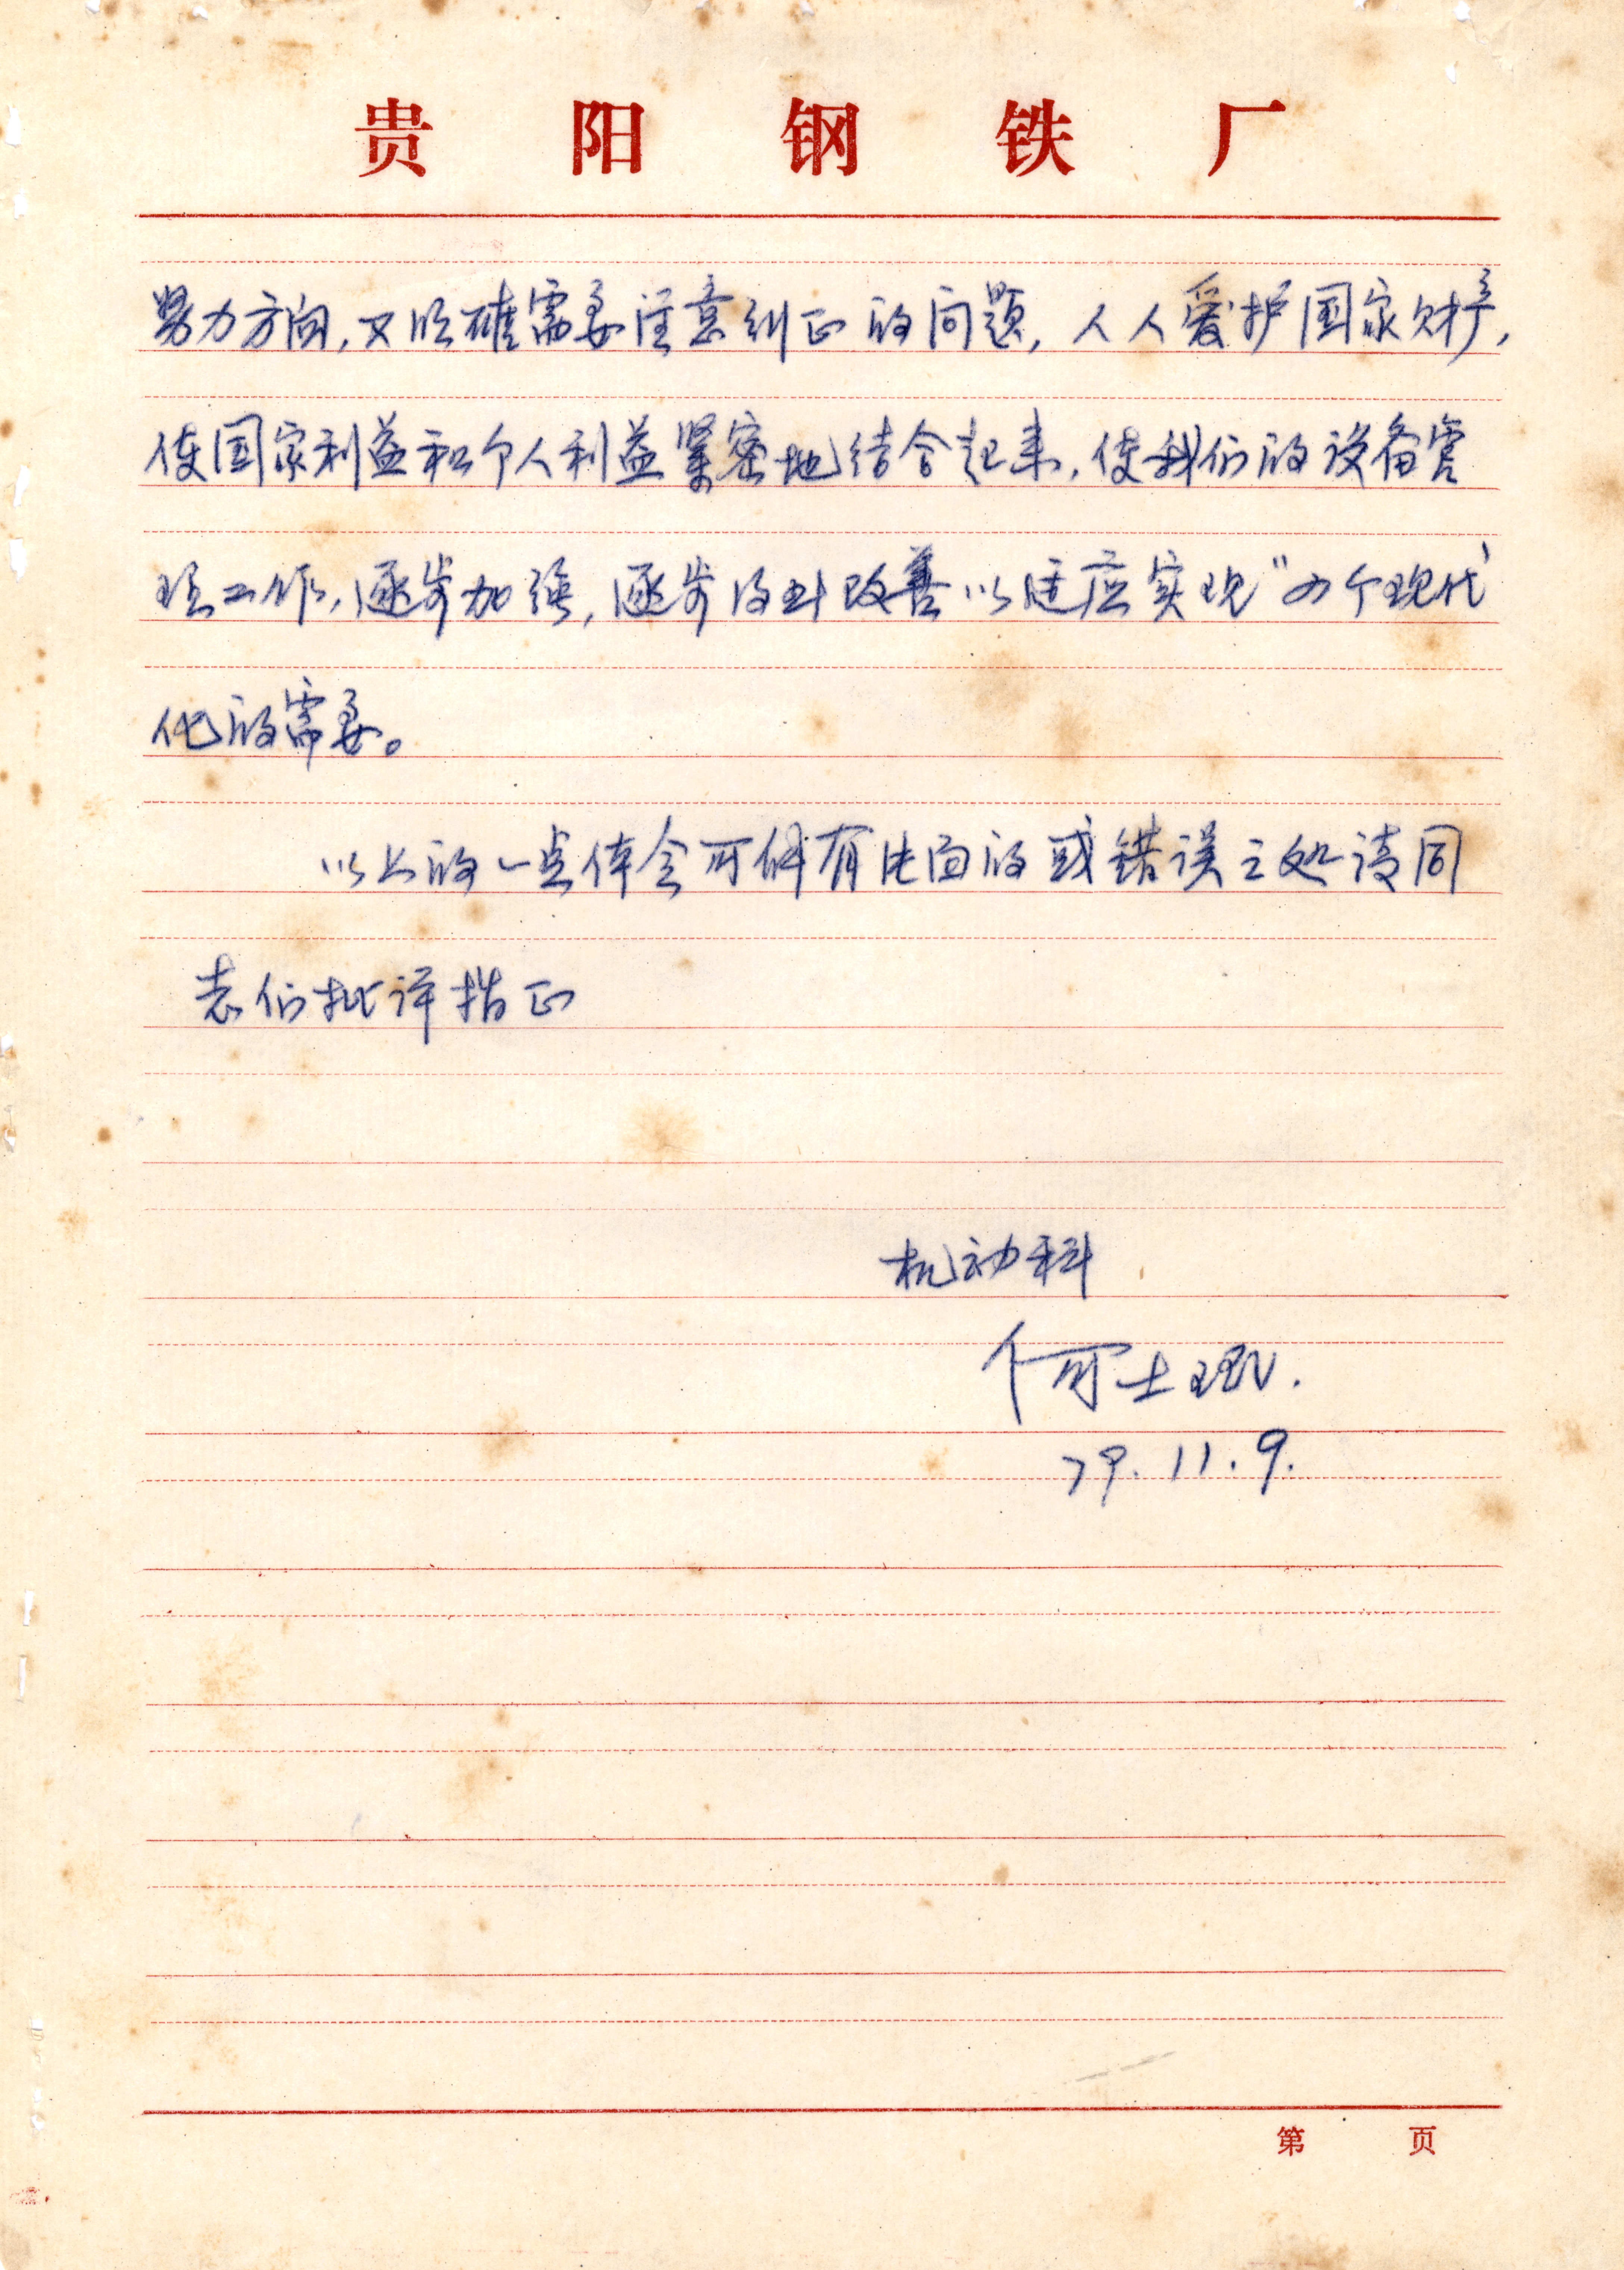 贵阳钢铁厂
努力方向,又明确需要注意纠正的问题,人人爱护国家财产,
使国家利益和个人利益紧密地结合起来,使我们的设备管
理工作,逐步加强,逐步得到改善以适应实现"四个现代
化的需要。
以上的一点体会可能有片面的或错误之处请同
志们批评指正
机动科
何士
79.11.9.
第 页